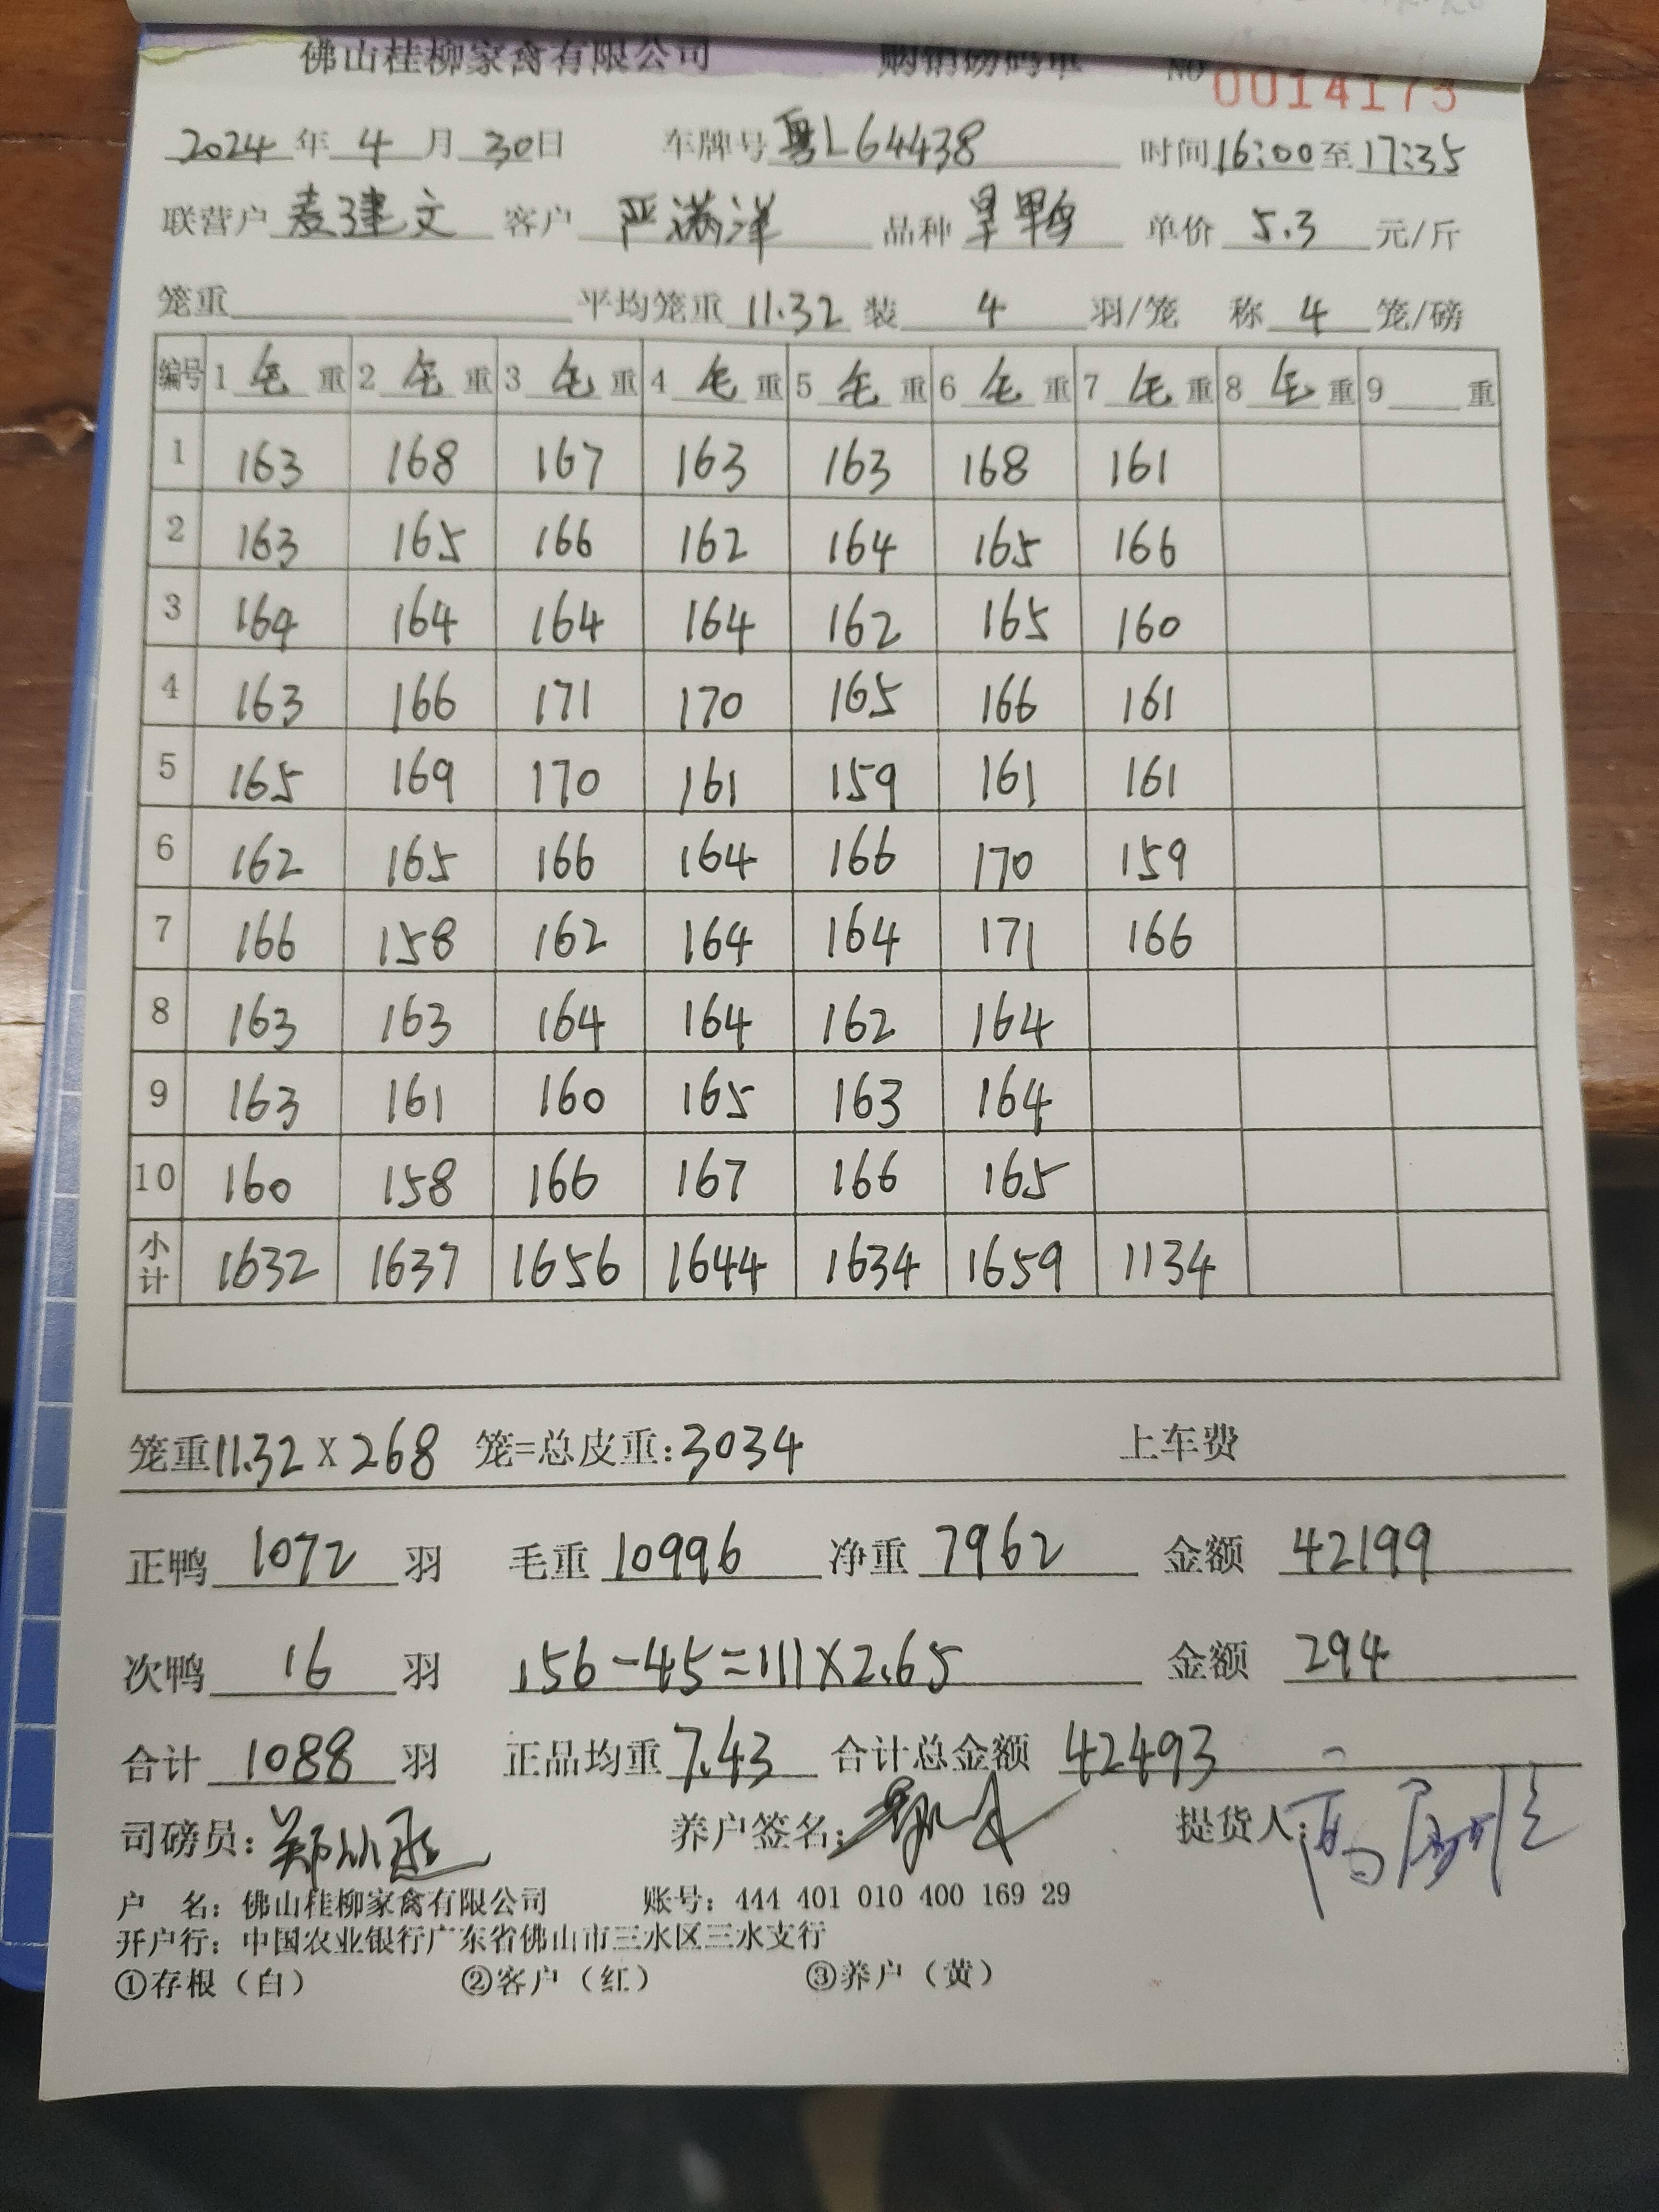 佛山桂柳家禽有限公司 购销磅码单 NO 0014173
2024 年 4 月 30 日 车牌号 粤L64438 时间 16:00 至 17:35
联营户 麦建文 客户 严满洋 品种 旱鸭 单价 5.3 元/斤
笼重 平均笼重 11.32 装 4 羽/笼 称 4 笼/磅
编号 1 毛 重 2 毛 重 3 毛 重 4 毛 重 5 毛 重 6 毛 重 7 毛 重 8 毛 重 9 重
1 163 168 167 163 163 168 161
2 163 165 166 162 164 165 166
3 164 164 164 164 162 165 160
4 163 166 171 170 165 166 161
5 165 169 170 161 159 161 161
6 162 165 166 164 166 170 159
7 166 158 162 164 164 171 166
8 163 163 164 164 162 164
9 163 161 160 165 163 164
10 160 158 166 167 166 165
小计 1632 1637 1656 1644 1634 1659 1134
笼重 11.32 X 268 笼=总皮重: 3034 上车费
正鸭 1072 羽 毛重 10996 净重 7962 金额 42199
次鸭 16 羽 156-45=111×2.65 金额 294
合计 1088 羽 正品均重 7.43 合计总金额 42493
司磅员: 养户签名: 提货人:
户 名: 佛山桂柳家禽有限公司 账号: 444 401 010 400 169 29
开户行: 中国农业银行广东省佛山市三水区三水支行
①存根（白） ②客户（红） ③养户（黄）